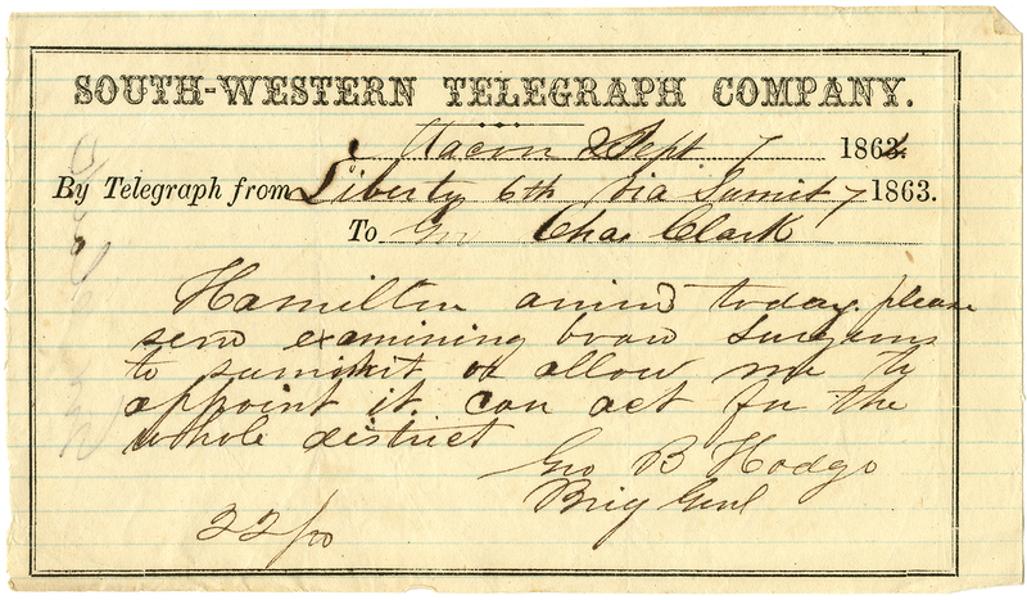 SOUTH-WESTERN TELEGRAPH COMPANY.
Macon Sept. 7 1863.
By Telegraph from Liberty 6th via Sumit 7 1863.
To Gov Chas Clark
Hamilton arrived today. please
send examining boad surgeons
to summit or allow me to
appoint it. can act for the
whole district
Geo B Hodge
Brig Genl
22/